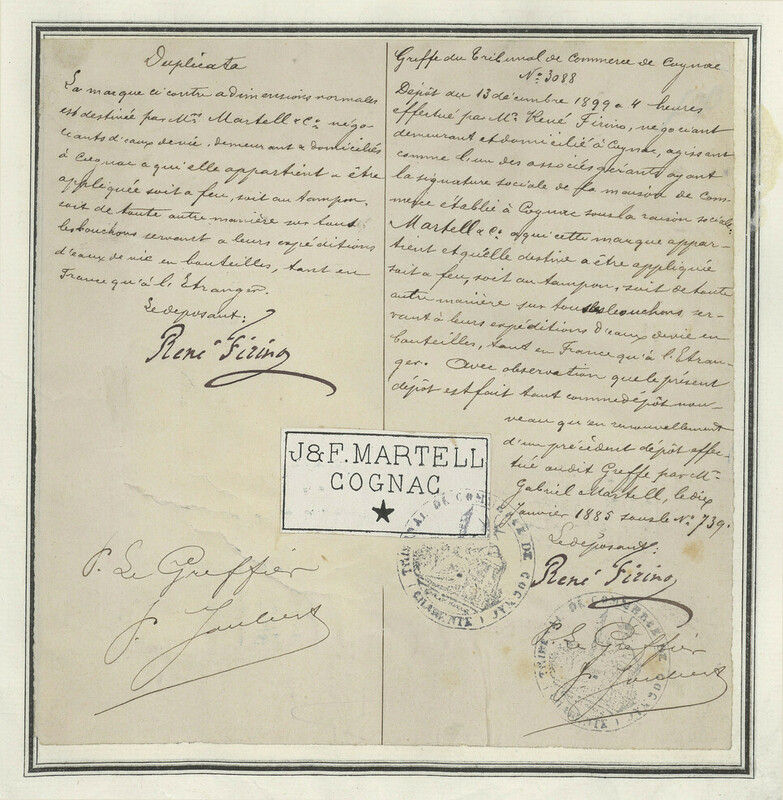 Duplicata
La marque ci contre a dimensions normales
est destinée par Mrs Martell & Co négo-
ciants d'eaux de vie, demeurant & domiciliés
à Cognac a qu'elle appartient a être
appliquée soit a feu, soit au tampon,
soit de toute autre manière sur tous
les bouchons servant a leurs expéditions
d'eaux de vie en bouteilles, tant en
France qu'à l'Etranger.
Le déposant:
René Firino
P. Le Greffier
J. Joubert
Greffe du Tribunal de Commerce de Cognac
No 3088
Dépôt du 13 décembre 1899 a 4 heures
effectué par Mr René Firino, négociant
demeurant et domicilié à Cognac, agissant
comme l'un des associés gérants ayant
la signature sociale de la maison de Com-
merce établie à Cognac sous la raison sociale:
Martell & Co a qui cette marque appar-
tient et qu'elle destine a être appliquée
soit a feu, soit au tampon, soit de toute
autre manière sur tous les bouchons ser-
vant à leurs expéditions d'eaux de vie en
bouteilles, tant en France qu'à l'Etran-
ger. Avec observation que le présent
dépôt est fait tant comme dépôt nou-
veau qu'en renouvellement
d'un précédent dépôt effec-
tué audit Greffe par Mr
Gabriel Martell, le dix
janvier 1885 sous le No 739.
Le déposant:
René Firino
P. Le Greffier
J. Joubert
J & F. MARTELL
COGNAC
TRIBUNAL DE COMMERCE DE COGNAC
(CHARENTE)
TRIBUNAL DE COMMERCE DE COGNAC
(CHARENTE)